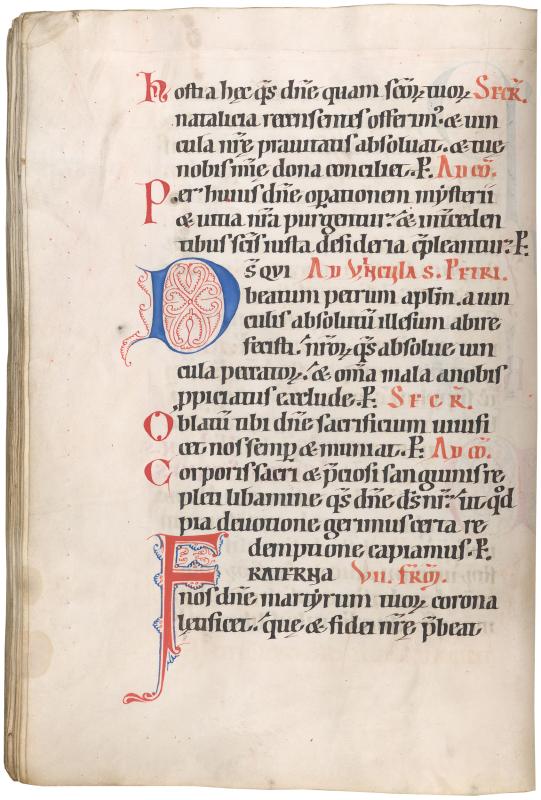 Hostia hęc qs̄ dn̄e quam sc̄oꝝ tuoꝝ SECR̄.
natalicia recensentes offerim᷒ & uin
cula nr̄e prauitatis absoluat. & tue
nobis mīe dona conciliet. P. AD CŌ.
Per huius dn̄e oꝑationem mysterii
& uitia nr̄a purgentur. & int̄ceden
tibus sc̄is iusta desideria cōpleantur. P.
DS̄ QVI AD VINCVLA S. PETRI.
beatum petrum apl̄m. a uin
culis absolutū illesum abire
fecisti. nr̄oꝝ qs̄ absolue uin
cula peccatoꝝ. & om̄a mala a nobis
ꝓpiciatus exclude. P. SECR̄.
Oblatū tibi dn̄e sacrificium uiuifi
cet nos semꝑ & muniat. P. AD CŌ.
Corporis sacri & p̄ciosi sanguinis re
pleti libamine qs̄ dn̄e ds̄ nr̄. ut qd̄
pia deuotione gerimus certa re
demptione capiamus. P.
FRATERNA VII. FR̄M̄.
nos dn̄e martyrum tuoꝝ corona
letificet. que & fidei nr̄e p̄beat